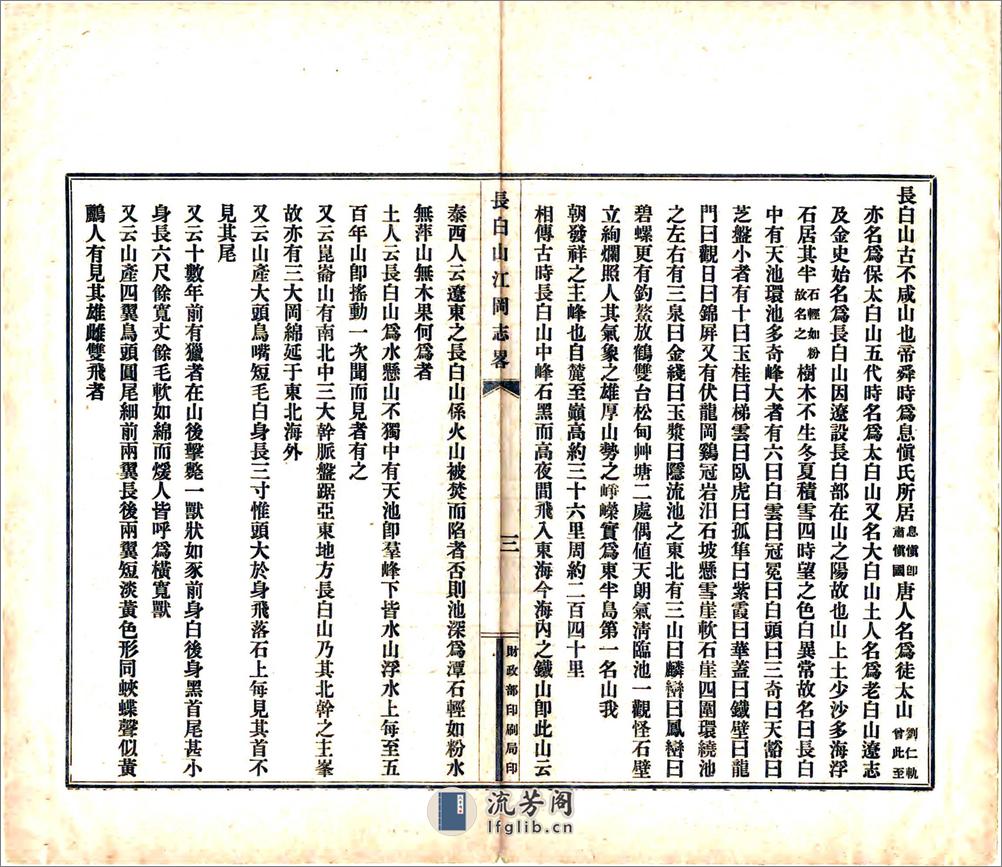 長白山古不咸山也帝舜時爲息愼氏所居息愼卽肅愼國唐人名爲徒太山劉仁軌曾此至
亦名爲保太白山五代時名爲太白山又名大白山土人名爲老白山遼志
及金史始名爲長白山因遼設長白部在山之陽故也山上土少沙多海浮
石居其半石輕如粉故名之樹木不生冬夏積雪四時望之色白異常故名曰長白
中有天池環池多奇峰大者有六曰白雲曰冠冕曰白頭曰三奇曰天豁曰
芝盤小者有十曰玉柱曰梯雲曰臥虎曰孤隼曰紫霞曰華蓋曰鐵壁曰龍
門曰觀日曰錦屏又有伏龍岡鷄冠岩汨石坡懸雪崖軟石崖四圍環繞池
之左右有三泉曰金綫曰玉漿曰隱流池之東北有三山曰麟巒曰鳳巒曰
碧螺更有釣鰲放鶴雙台松甸艸塘二處偶值天朗氣淸臨池一觀怪石壁
立絢爛照人其氣象之雄厚山勢之崢嶸實爲東半島第一名山我
朝發祥之主峰也自麓至巔高約三十六里周約二百四十里
相傳古時長白山中峰石黑而高夜間飛入東海今海內之鐵山卽此山云
長白山江岡志畧
三
財政部印刷局印
泰西人云遼東之長白山係火山被焚而陷者否則池深爲潭石輕如粉水
無萍山無木果何爲者
土人云長白山爲水懸山不獨中有天池卽羣峰下皆水山浮水上每至五
百年山卽搖動一次聞而見者有之
又云崑崙山有南北中三大幹脈盤踞亞東地方長白山乃其北幹之主峯
故亦有三大岡綿延于東北海外
又云山產大頭鳥嘴短毛白身長三寸惟頭大於身飛落石上每見其首不
見其尾
又云十數年前有獵者在山後擊斃一獸狀如豕前身白後身黑首尾甚小
身長六尺餘寬丈餘毛軟如綿而煖人皆呼爲橫寬獸
又云山產四翼鳥頭圓尾細前兩翼長後兩翼短淡黃色形同蛺蝶聲似黃
鸝人有見其雄雌雙飛者
流芳阁
lfglib.cn